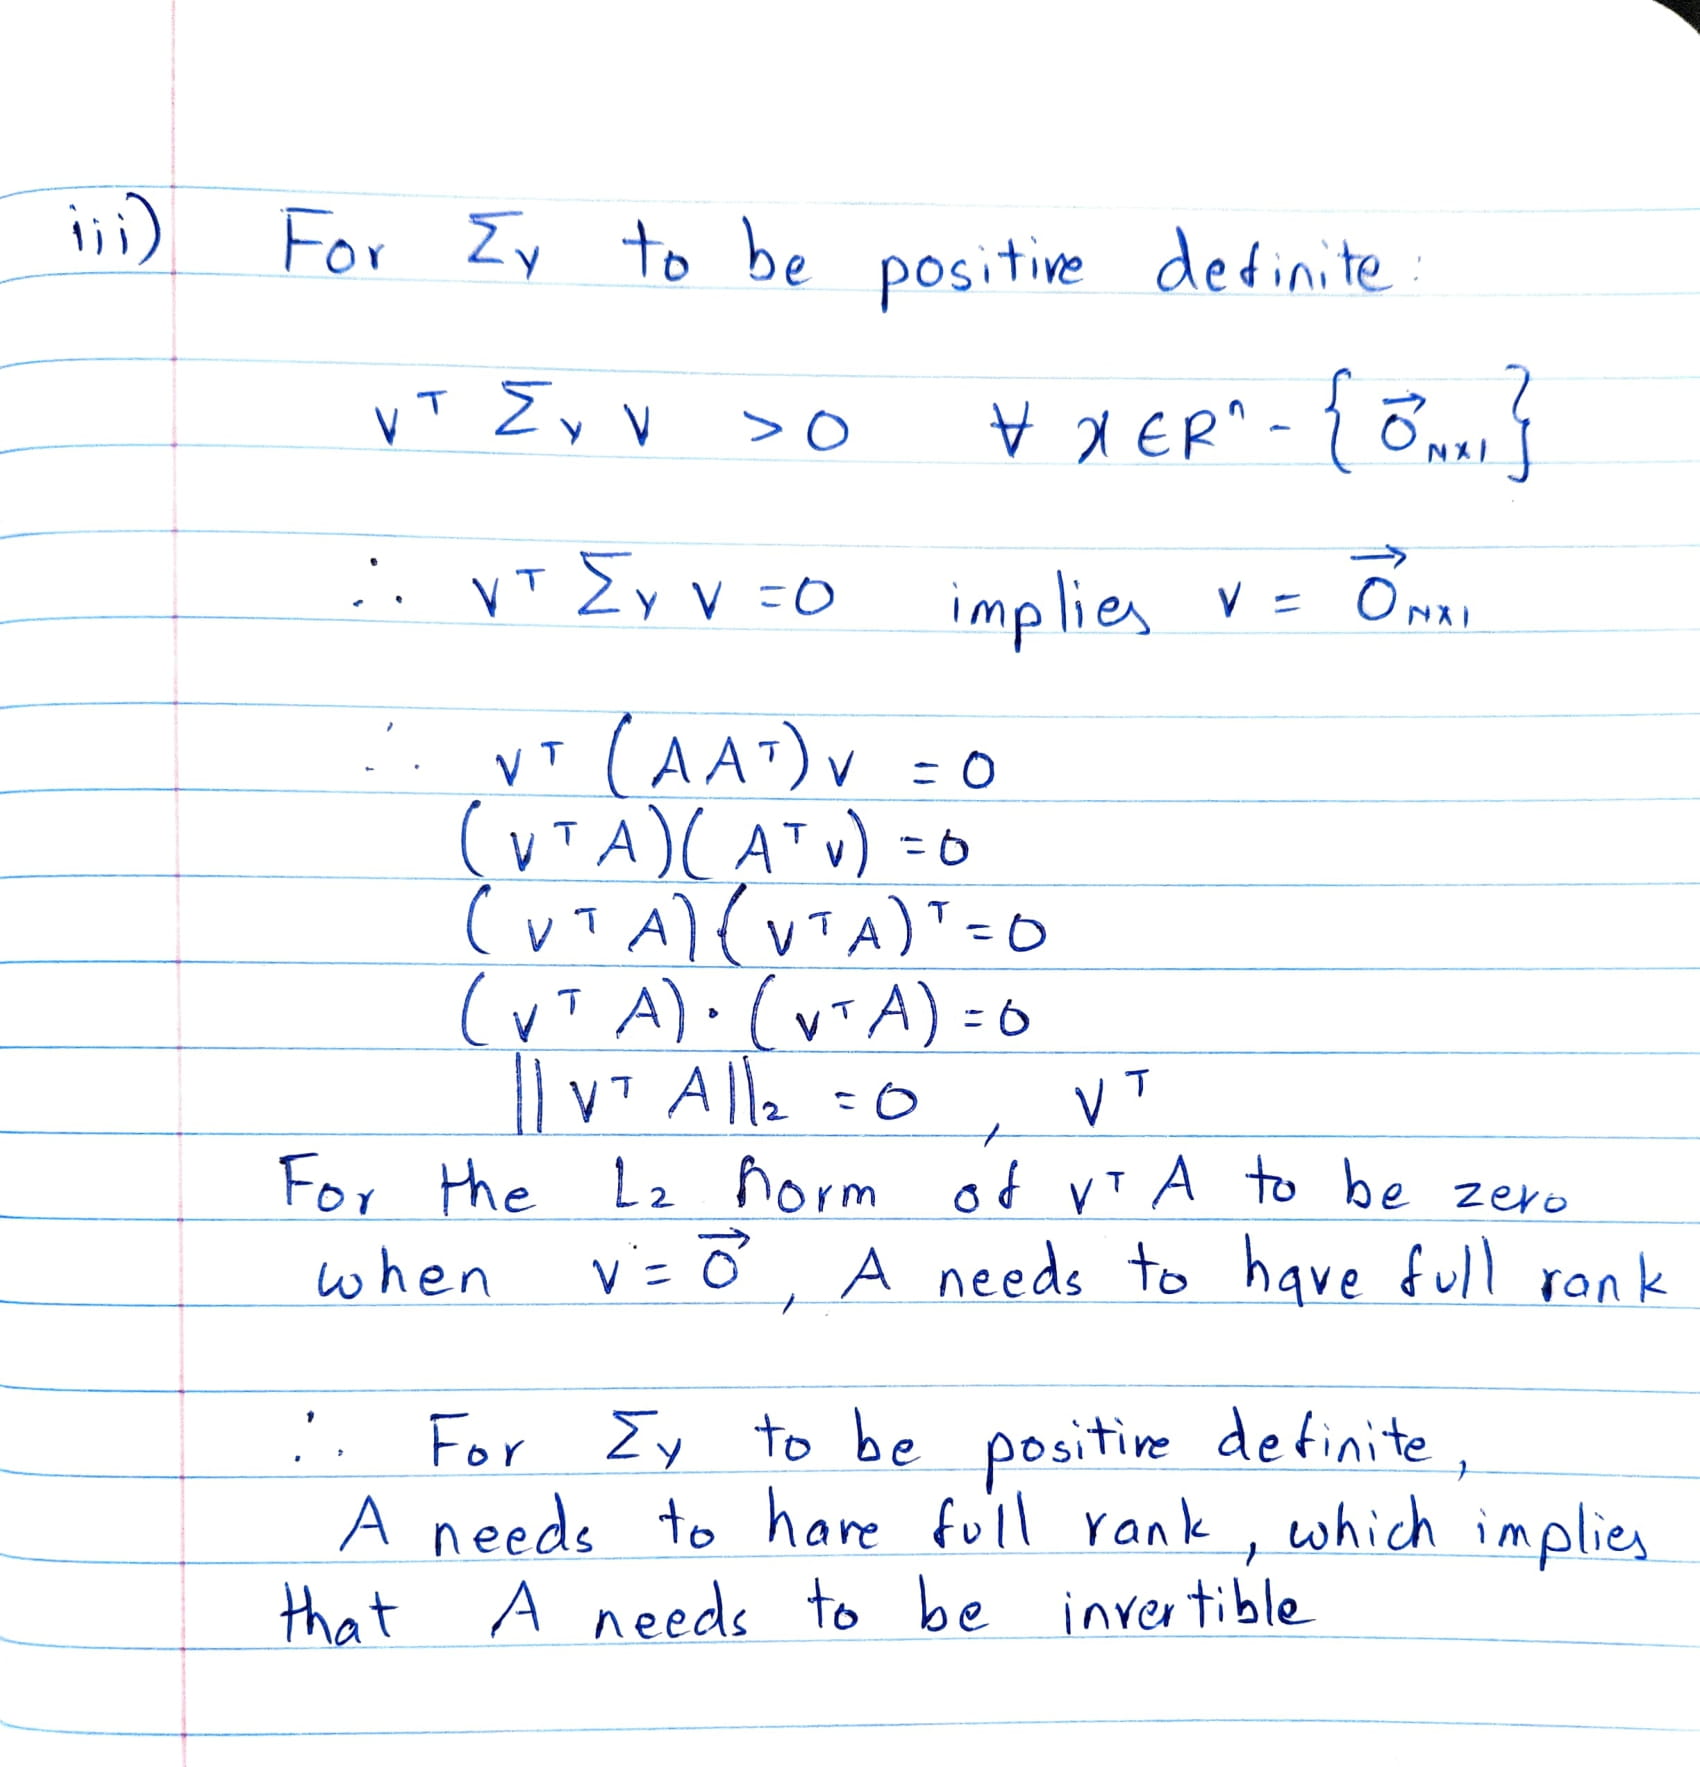 iii) For Σy to be positive definite:
vᵀ Σy v > 0 ∀ x ∈ Rⁿ - { 0⃗ N×1 }
∴ vᵀ Σy v = 0 implies v = 0⃗ N×1
∴ vᵀ (A Aᵀ) v = 0
(vᵀ A)(Aᵀ v) = 0
(vᵀ A)(vᵀ A)ᵀ = 0
(vᵀ A) · (vᵀ A) = 0
||vᵀ A||₂ = 0 , vᵀ
For the L₂ norm of vᵀ A to be zero
when v = 0⃗ , A needs to have full rank
∴ For Σy to be positive definite,
A needs to have full rank, which implies
that A needs to be invertible